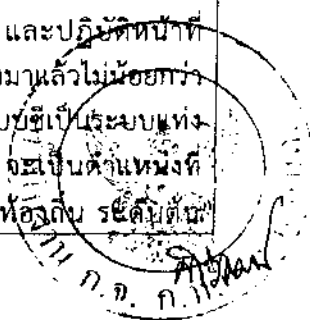 และปฏิบัติหน้าที่
มาแล้วไม่น้อยกว่า
เป็นระบบแท่ง
จะเป็นตำแหน่งที่
ท้องถิ่น ระดับต้น"
ก.จ. ก.